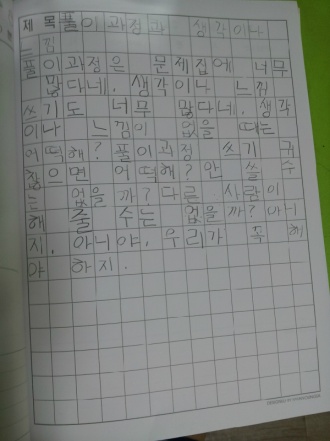 제 목 풀이 과정과 생각이나
느낌
풀이 과정은 문제집에 너무
많다네. 생각이나 느낌
쓰기도 너무 많다네. 생각
이나 느낌이 없을 때는
어떡해? 풀이과정 쓰기 귀
찮으면 어떡해? 안 쓸 수
는 없을까? 다른 사람이
해 줄 수는 없을까? 아니
지, 아니야, 우리가 꼭 해
야 하지.